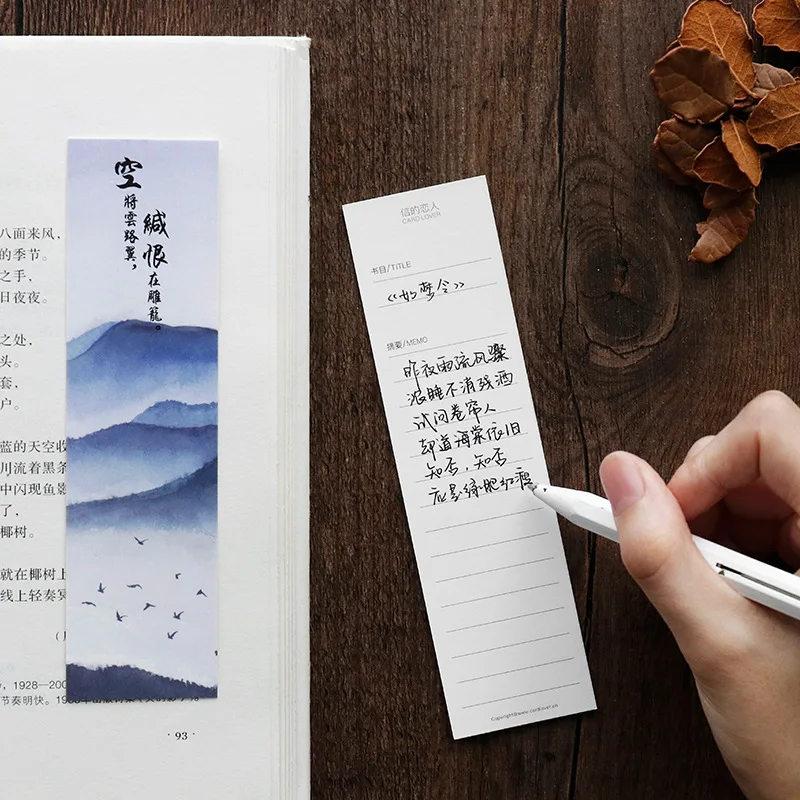 八面来风,
的季节。
之手,
日夜夜。
之处,
头。
套,
户。
蓝的天空收
川流着黑条
中闪现鱼影
了,
椰树。
就在椰树上
线上轻奏冥
, 1928—200
节奏明快。
· 93 ·
空將雲路翼，
緘恨在雕籠。
信的恋人
CARD LOVER
书目/TITLE
《如梦令》
摘要/MEMO
昨夜雨疏风骤
浓睡不消残酒
试问卷帘人
却道海棠依旧
知否，知否
应是绿肥红瘦